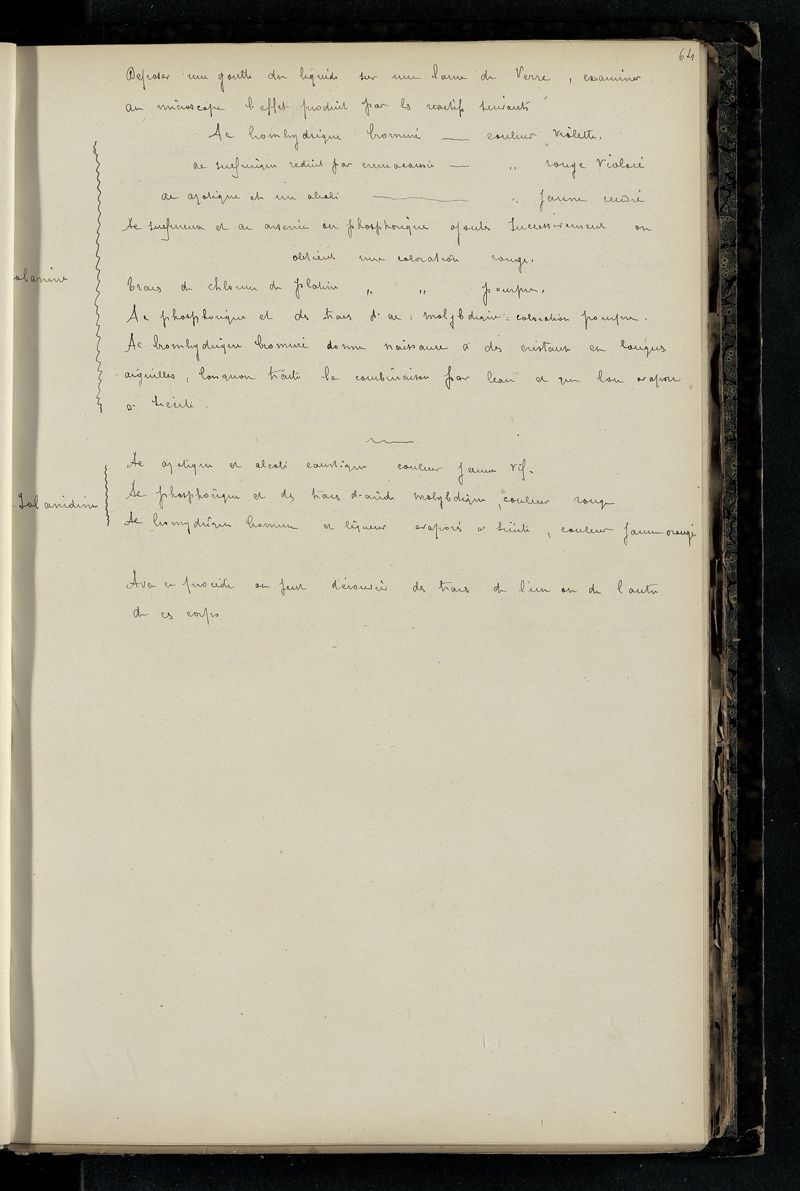 64
Deposer une goutte du liquide sur une lame de Verre, examiner
au microscope l'effet produit par les reactifs suivants
Ac bromhydrique bromuré — couleur Violette.
ac sulfurique reduit par — " rouge Violacé
ac azotique et un alcali — " Jaune
Ac sulfureux et ac arsenic ou phosphorique ajoutés successivement on
obtient une coloration rouge.
olanine
traces de chlorure de platine " " pourpre.
Ac phosphorique et des traces d'ac. molybdique = coloration pourpre.
Ac bromhydrique bromuré donne naissance à des cristaux en longues
aiguilles, lorsquon traite la combinaison par leau et que lon evapore
a siccité.
Ac azotique et alcali caustique couleur jaune vif.
Solanidine
Ac phosphorique et des traces d'acide molybdique, couleur rouge
Ac bromydrique bromuré et liqueur evaporée a siccité, couleur Jaune orangé
Avec ce procédé on peut découvrir des traces de l'un ou de l'autre
de ces corps